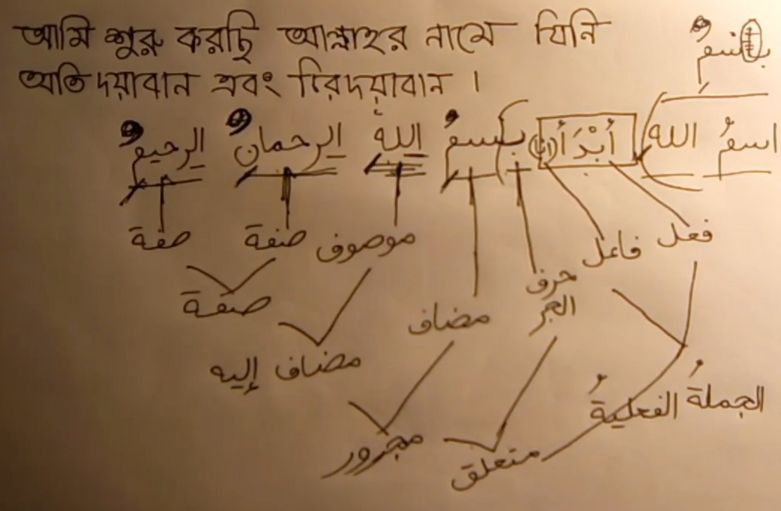 আমি শুরু করছি আল্লাহর নামে যিনি
অতি দয়াবান এবং চিরদয়াবান ।
بِاسْمِ
اسمُ الله
أَبْدَأُ (أنا) بِسْمِ الله الرحمان الرحيم
فعل فاعل حرف الجر مضاف موصوف صفة صفة
صفة
مضاف إليه
مجرور
متعلق
الجملةُ الفعليةُ